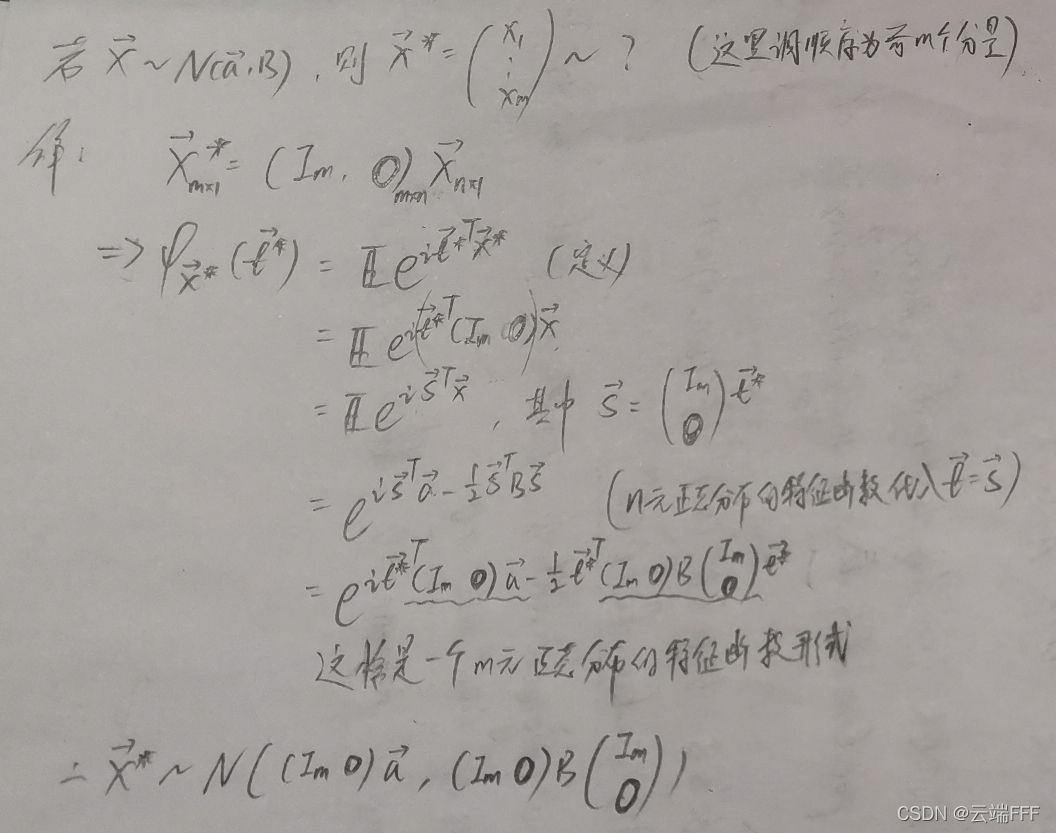 若 $\vec{X} \sim N(\vec{a}, B)$, 则 $\vec{X}^* = \begin{pmatrix} x_1 \\ \vdots \\ x_m \end{pmatrix} \sim$ ? (这里调顺序为前m个分量)
解: $\vec{X}^*_{m×1} = (I_m, 0)_{m×n} \vec{X}_{n×1}$
$\Rightarrow \varphi_{\vec{X}^*}(\vec{t}^*) = \mathbb{E} e^{i\vec{t}^{*T}\vec{X}^*}$ (定义)
$= \mathbb{E} e^{i(\vec{t}^{*T}(I_m \ 0))\vec{X}}$
$= \mathbb{E} e^{i\vec{s}^T\vec{X}}$, 其中 $\vec{s} = \begin{pmatrix} I_m \\ 0 \end{pmatrix} \vec{t}^*$
$= e^{i\vec{s}^T\vec{a} - \frac{1}{2}\vec{s}^T B\vec{s}}$ (n元正态分布的特征函数代入 $\vec{t} = \vec{s}$)
$= e^{i\vec{t}^{*T}(I_m \ 0)\vec{a} - \frac{1}{2}\vec{t}^{*T}(I_m \ 0)B\begin{pmatrix} I_m \\ 0 \end{pmatrix}\vec{t}^*}$
这恰是一个m元正态分布的特征函数形式
$\therefore \vec{X}^* \sim N((I_m \ 0)\vec{a}, (I_m \ 0)B\begin{pmatrix} I_m \\ 0 \end{pmatrix})$
CSDN @云端FFF